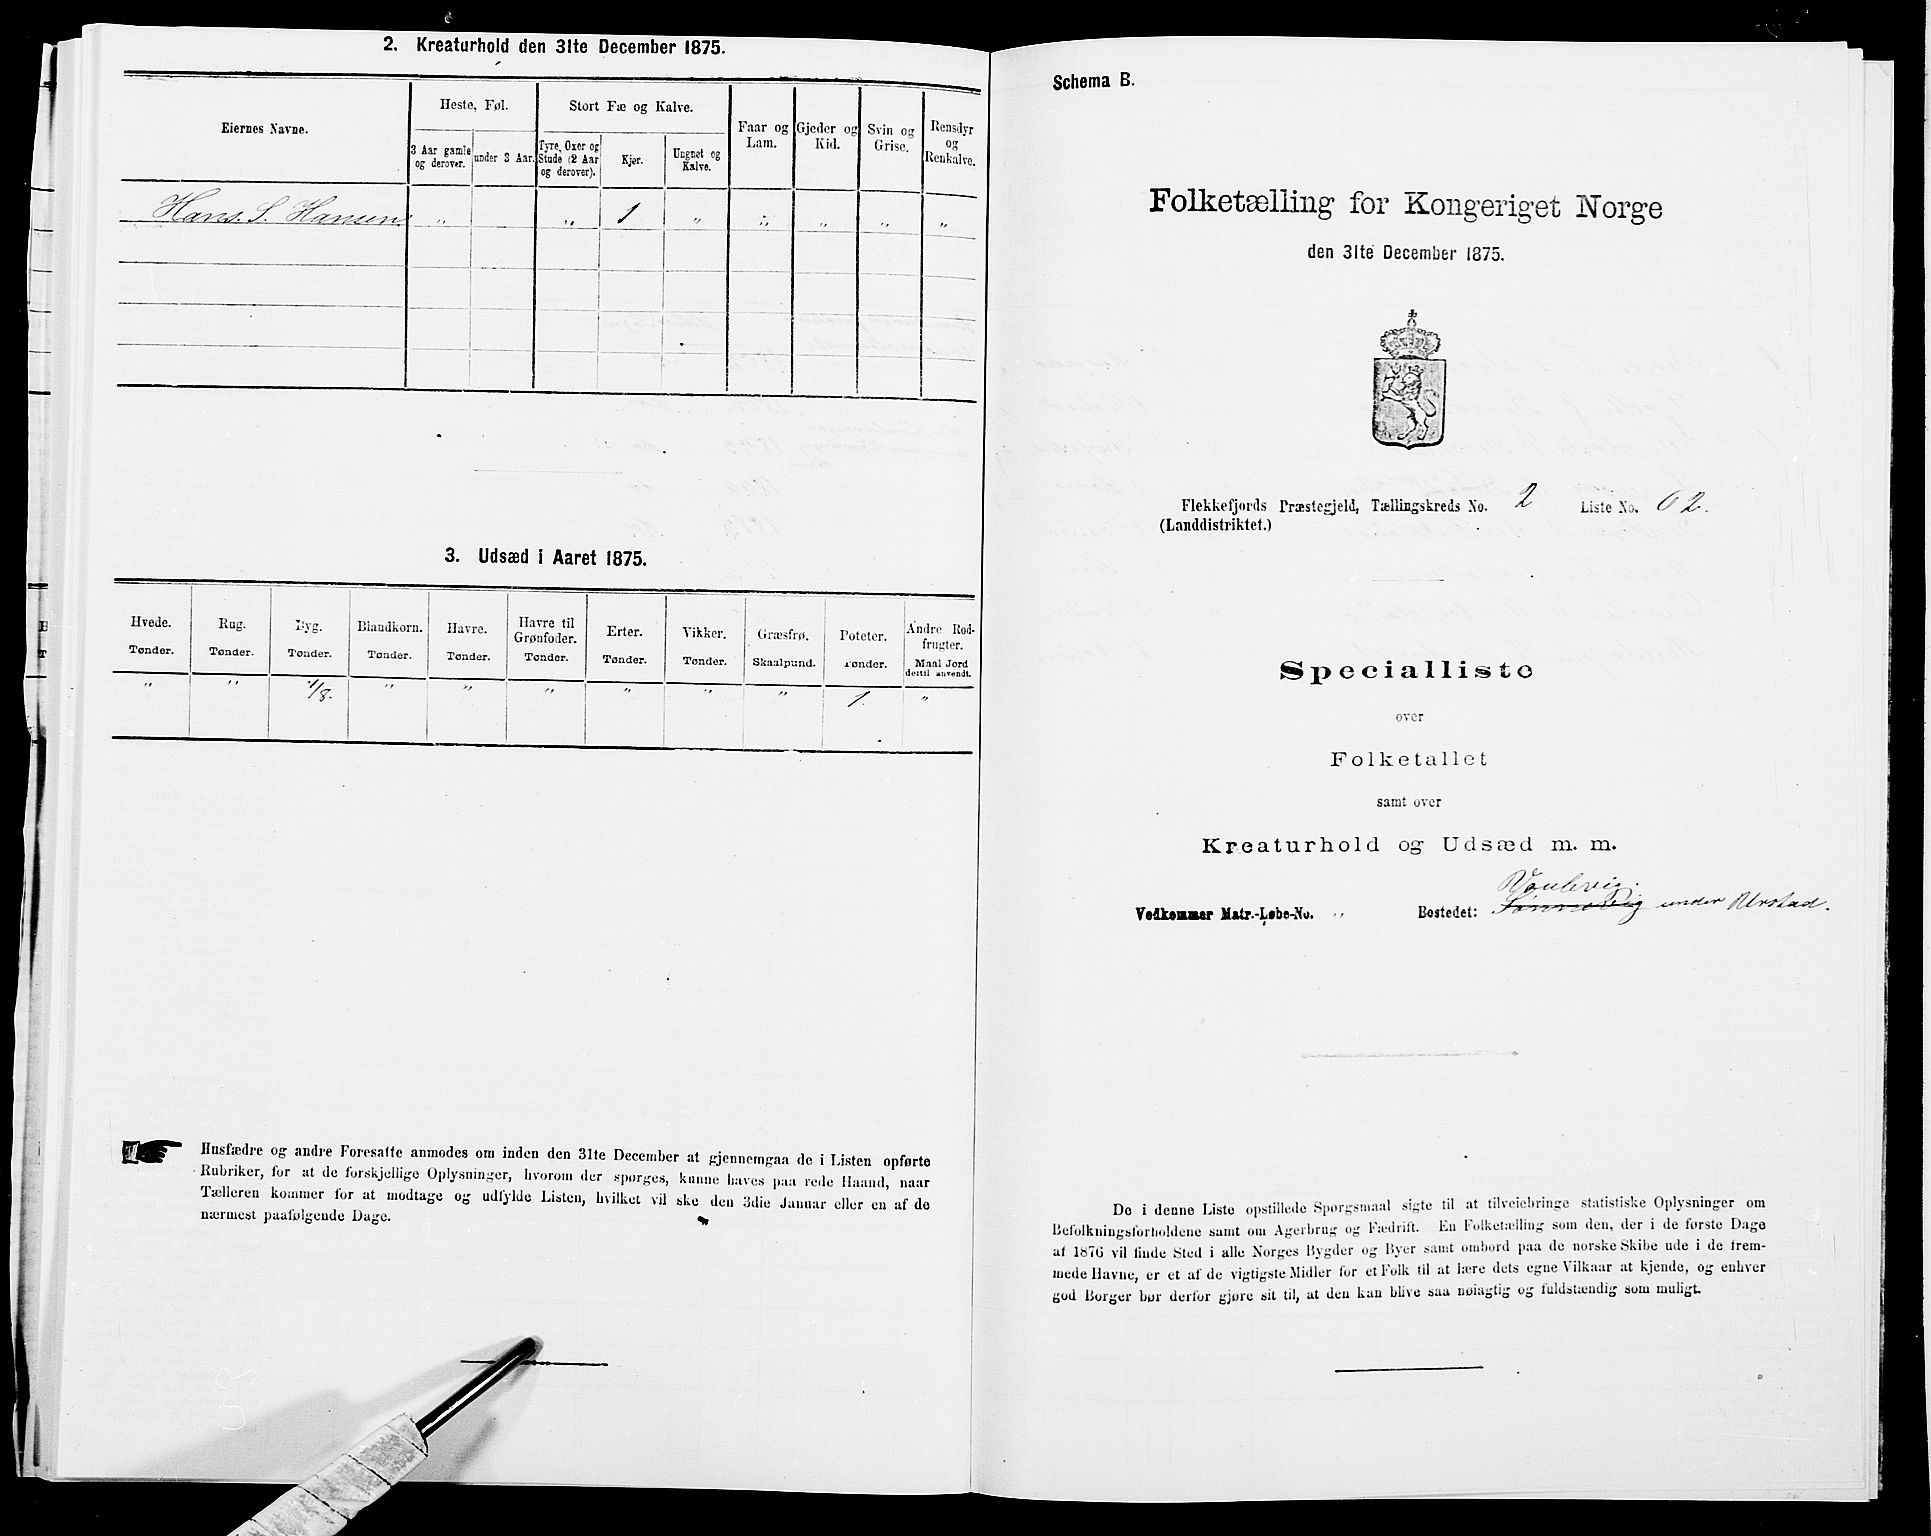 2. Kreaturhold den 31te December 1875.
Eiernes Navne.
Heste, Føl.
Stort Fæ og Kalve.
Faar og Lam.
Gjeder og Kid.
Svin og Grise.
Rensdyr og Renkalve.
3 Aar gamle og derover.
under 3 Aar.
Tyre, Oxer og Stude (2 Aar og derover).
Kjør.
Ungnøt og Kalve.
Hans. S. Hansen " " 1 " " " " "
3. Udsæd i Aaret 1875.
Hvede. Rug. Byg. Blandkorn. Havre. Havre til Grønfoder. Erter. Vikker. Græsfrø. Poteter. Andre Rodfrugter.
Tønder. Tønder. Tønder. Tønder. Tønder. Tønder. Tønder. Tønder. Skaalpund. Tønder. Maal Jord dertil anvendt.
" " 1/8. " " " " " " 1. "
Husfædre og andre Foresatte anmodes om inden den 31te December at gjennemgaa de i Listen opførte
Rubriker, for at de forskjellige Oplysninger, hvorom der spørges, kunne haves paa rede Haand, naar
Tælleren kommer for at modtage og udfylde Listen, hvilket vil ske den 3die Januar eller en af de
nærmest paafølgende Dage.
Schema B.
Folketælling for Kongeriget Norge
den 31te December 1875.
Flekkefjords Præstegjeld, Tællingskreds No. 2 Liste No. 62.
(Landdistriktet.)
Specialliste
over
Folketallet
samt over
Kreaturhold og Udsæd m. m.
Vedkommer Matr.-Løbe-No. " Bostedet: under
De i denne Liste opstillede Spørgsmaal sigte til at tilveiebringe statistiske Oplysninger om
Befolkningsforholdene samt om Agerbrug og Fædrift. En Folketælling som den, der i de første Dage
af 1876 vil finde Sted i alle Norges Bygder og Byer samt ombord paa de norske Skibe ude i de frem-
mede Havne, er et af de vigtigste Midler for et Folk til at lære dets egne Vilkaar at kjende, og enhver
god Borger bør derfor gjøre sit til, at den kan blive saa nøiagtig og fuldstændig som muligt.